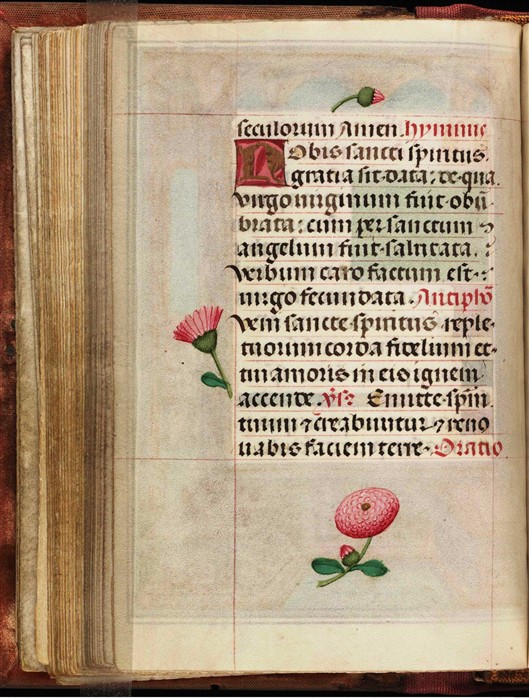 seculorum Amen. hymnus
Nobis sancti spiritus
gratia sit data: de qua
virgo virginum fuit obū
brata: cum per sanctum
angelum fuit salutata.
verbum caro factum est
virgo fecundata. Antiphō
veni sancte spiritus reple
tuorum corda fidelium et
tui amoris in eis ignem
accende. Emitte spiri
tuum ⁊ creabuntur ⁊ reno
vabis faciem terre. Oratio